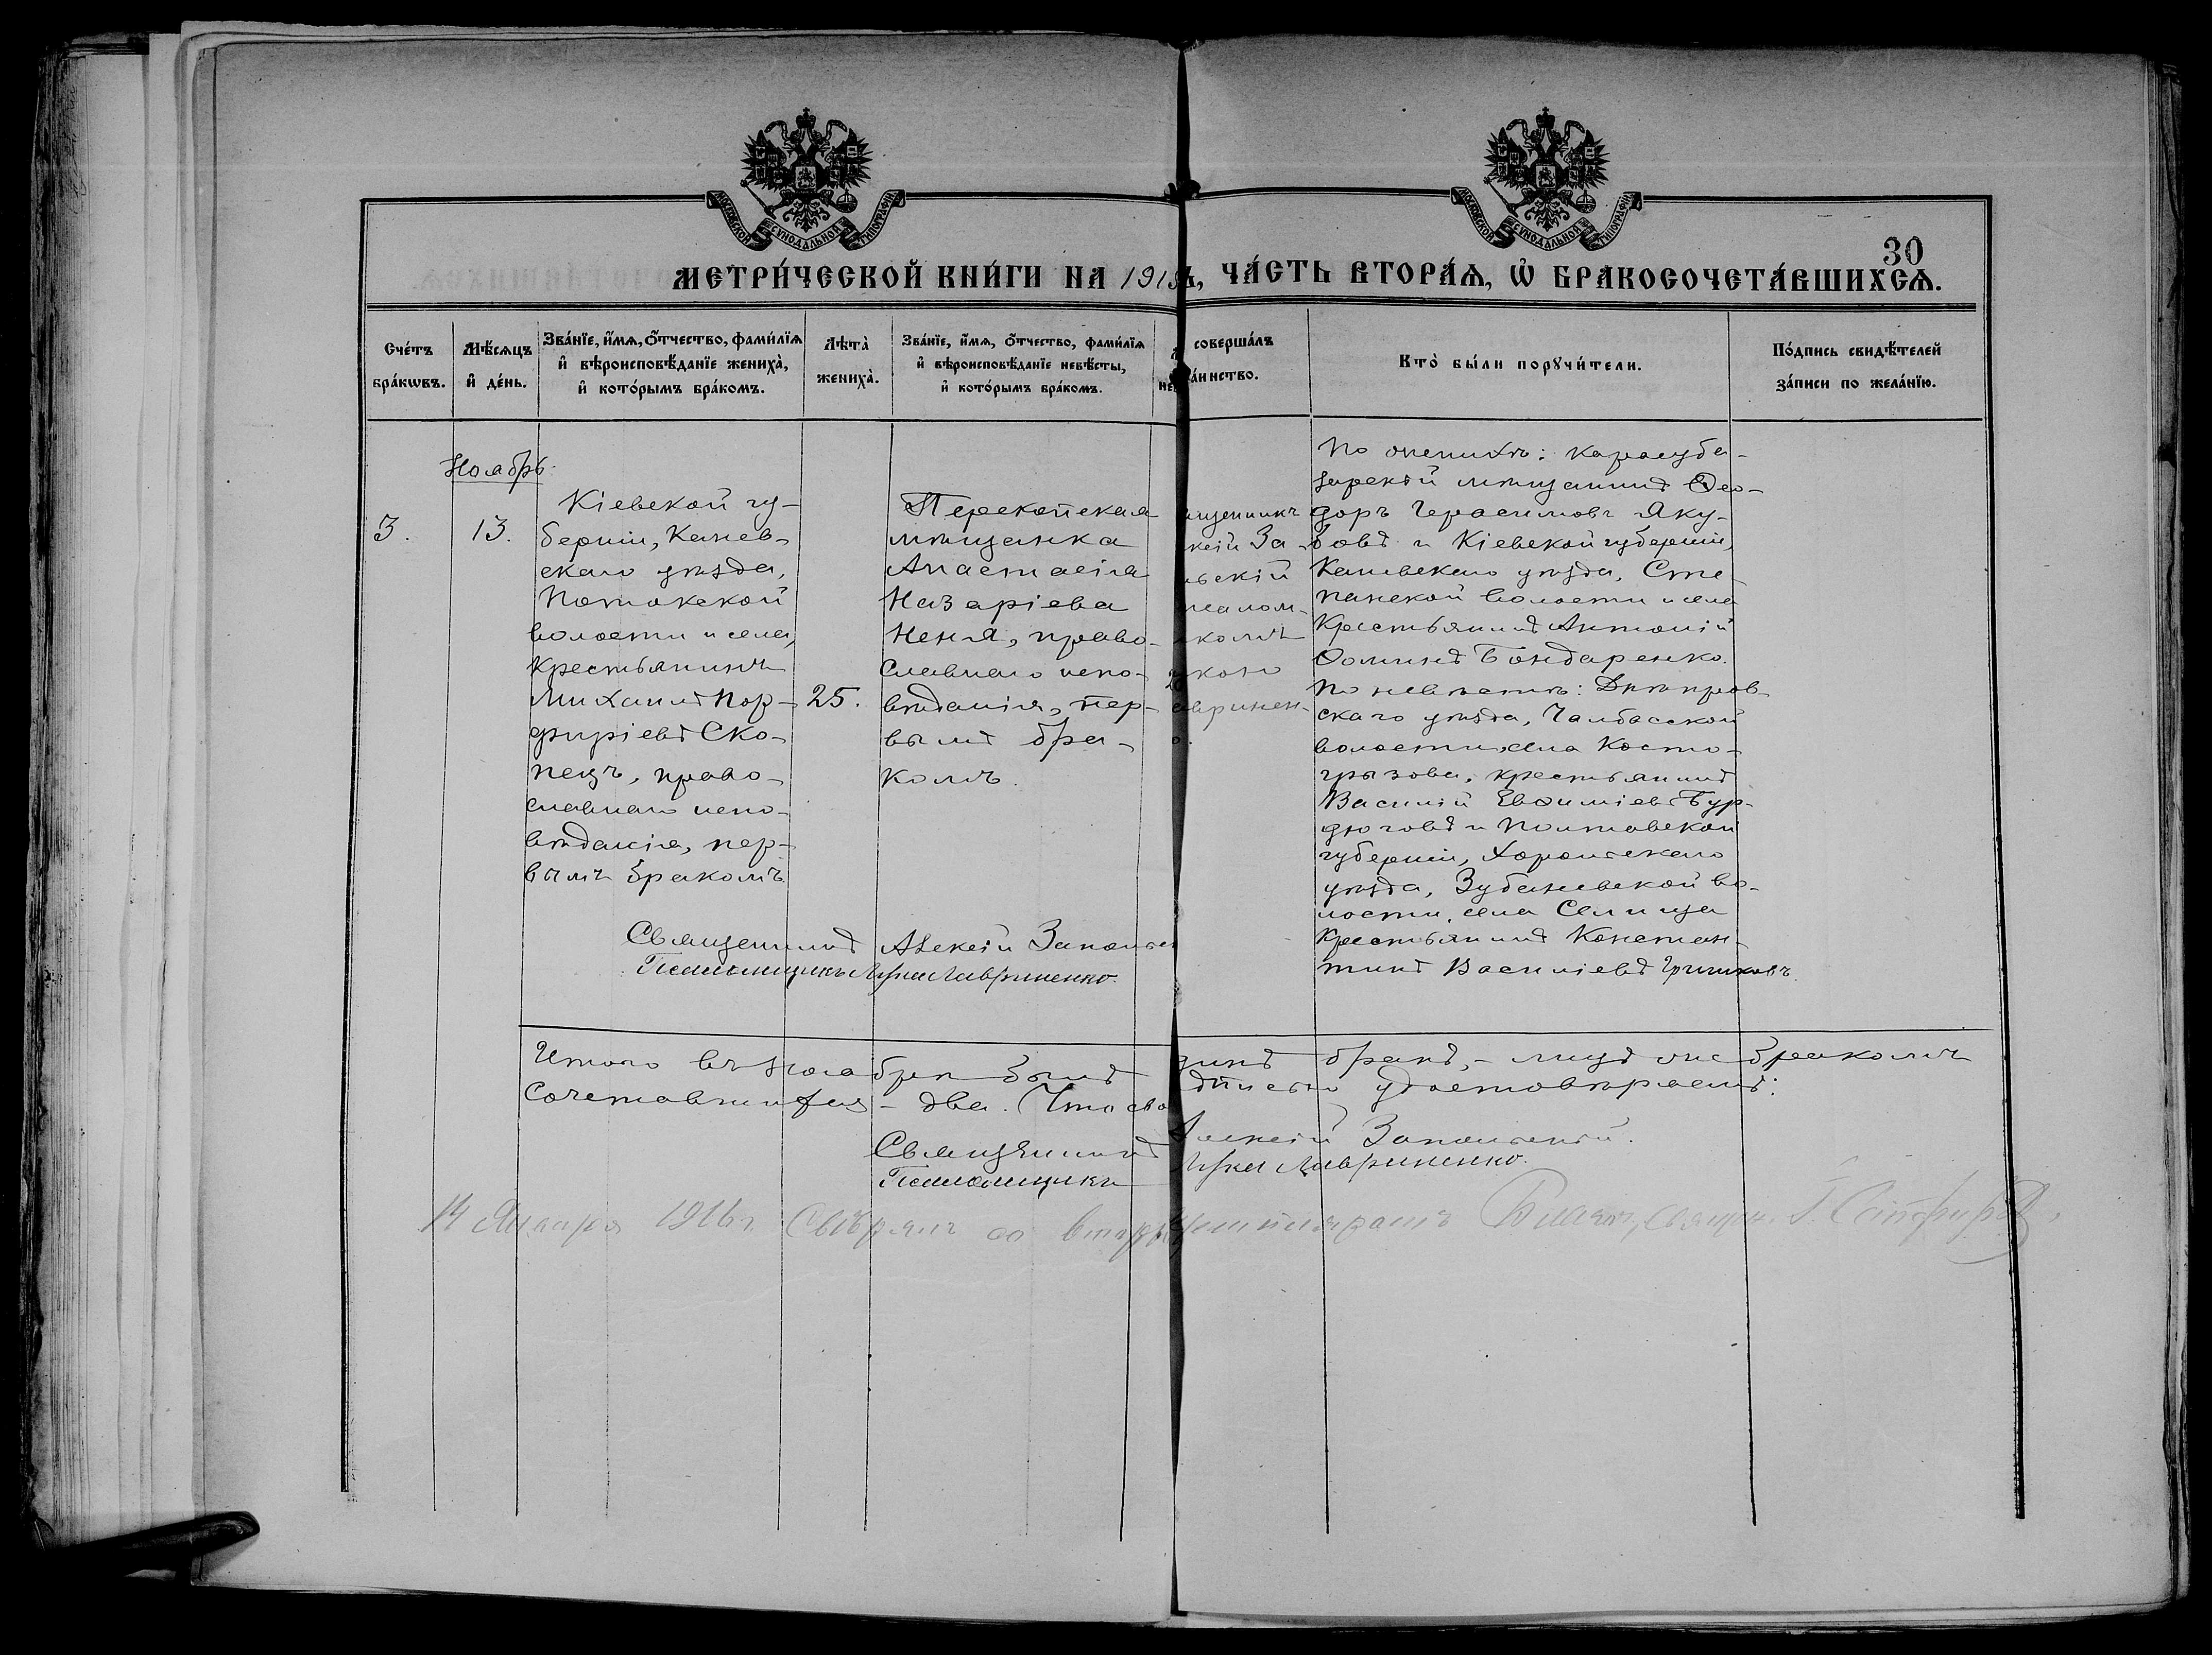 МОСКОВСКОЙ СѴНОДАЛЬНОЙ ТИПОГРАФІИ
МОСКОВСКОЙ СѴНОДАЛЬНОЙ ТИПОГРАФІИ
30
МЕТРИ́ЧЕСКОЙ КНИ́ГИ НА 1915 Ъ, ЧА́СТЬ ВТОРА́Ѧ, Ѡ҆ БРАКОСОЧЕТА́ВШИХСѦ.
Сче́тъ
бра́кѡвъ.
Мѣ́сѧцъ
и҆ де́нь.
Зва́нїе, и҆́мѧ, ѻ҆́тчество, фами́лїѧ
и҆ вѣроисповѣ́данїе жениха̀,
и҆ кото́рымъ бра́комъ.
Лѣта̀
жениха̀.
Зва́нїе, и҆́мѧ, ѻ҆́тчество, фами́лїѧ
и҆ вѣроисповѣ́данїе невѣ́сты,
и҆ кото́рымъ бра́комъ.
соверша́лъ
та́инство.
Кто̀ бы́ли порꙋчи́тели.
По́дпись свидѣ́телей
за́писи по жела́нїю.
Ноябрь.
3.
13.
Кіевской гу-
берніи, Канев-
скаго уѣзда,
Потокской
волости и села,
крестьянинъ
Михаилъ Пор-
фиріевъ Ско-
пецъ, право-
славнаго испо-
вѣданія, пер-
вымъ бракомъ.
25.
Перекопская
мѣщанка
Анастасія
Назаріева
Неня, право-
славнаго испо-
вѣданія, пер-
вымъ бра-
комъ.
щенникъ
ксій За-
ьскій
псалом-
комъ
кою
авринен-
о.
По женихѣ: Карасуба-
зарскій мѣщанинъ Ѳео-
доръ Герасимовъ Яку-
бовъ и Кіевской губерніи,
Каневскаго уѣзда, Сте-
панской волости и села
крестьянинъ Антоній
Ѳоминъ Бондаренко.
По невѣстѣ: Днѣпров-
скаго уѣзда, Чалбасской
волости, села Косто-
грызова, крестьянинъ
Василій Евѳиміевъ Бур-
дюговъ и Полтавской
губерніи, Хорольскаго
уѣзда, Зубаневской во-
лости, села Селища
крестьянинъ Констан-
тинъ Василіевъ Гришковъ.
Священникъ Алексій Запольск
Псаломщикъ Лука Лавриненко.
Итого въ ноябрѣ былъ динъ бракъ, - лицъ же бракомъ
сочетавшихся - два. Что сво дписью удостовѣряемъ:
Священникъ Алексій Запольскій.
Псаломщикъ Лука Лавриненко.
14 Января 1916 г. Свѣрялъ со вторы экземпляромъ Благоч., Священ. І.